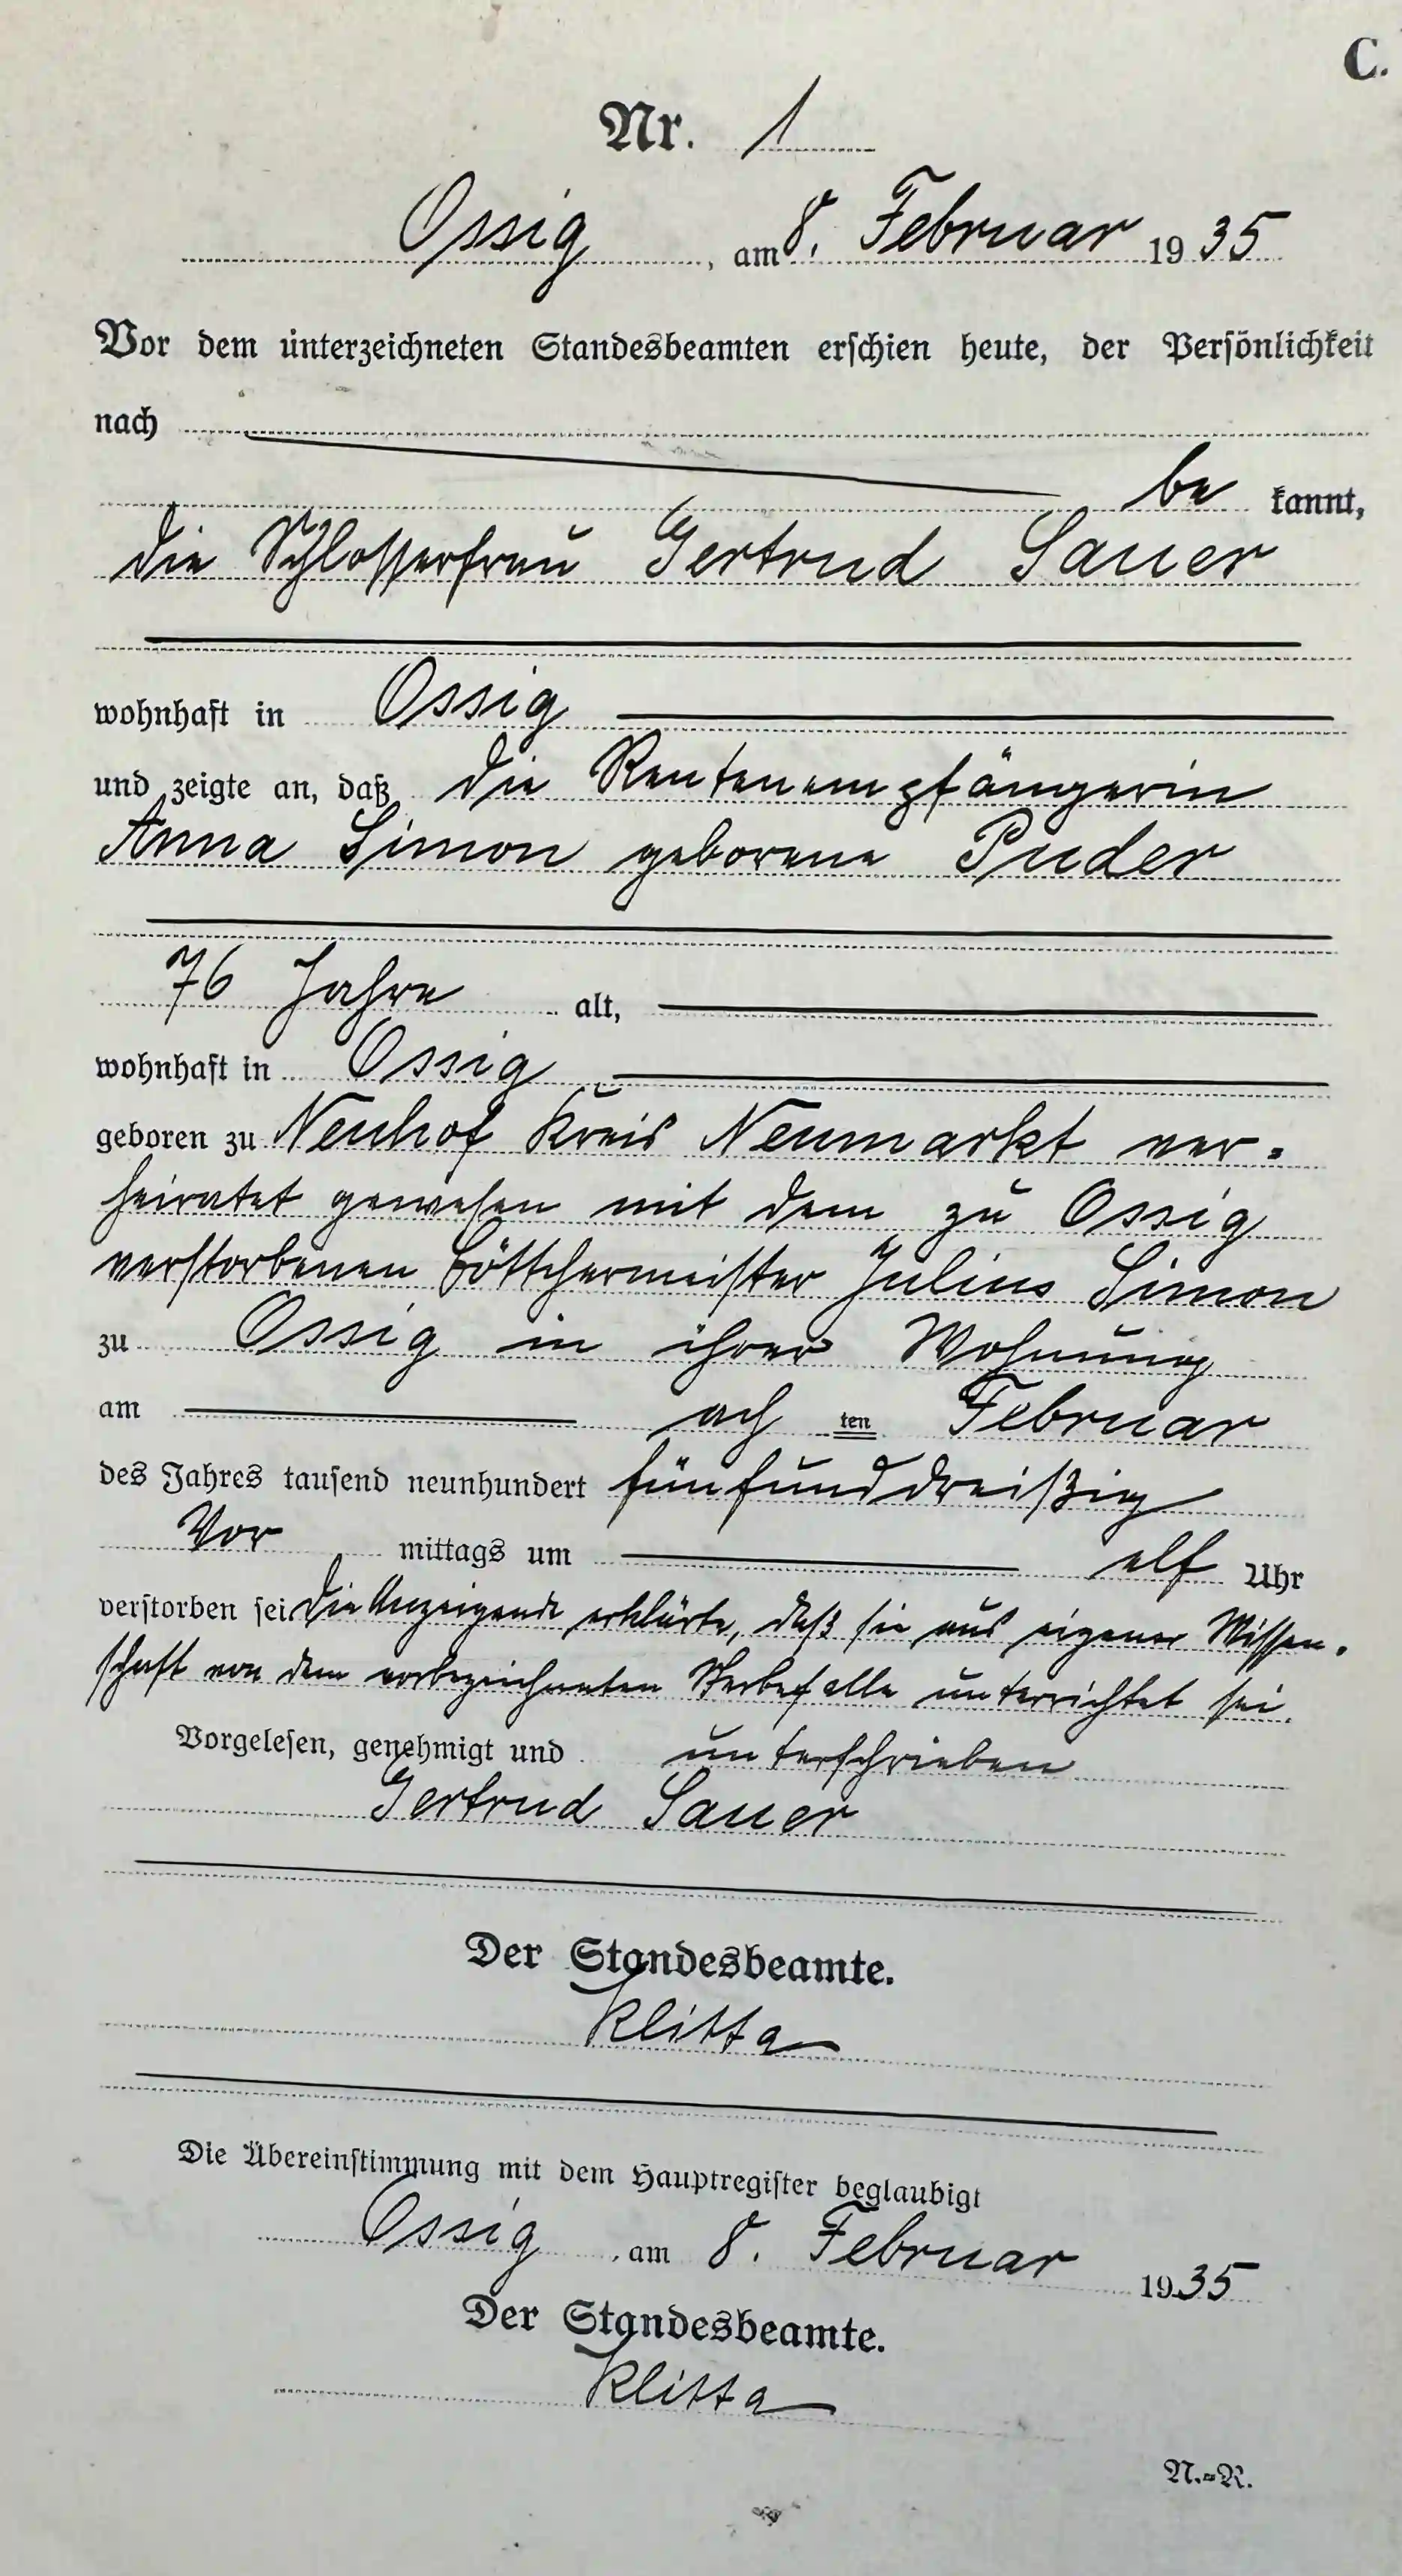 C.
Nr. 1
Ossig, am 8. Februar 1935
Vor dem unterzeichneten Standesbeamten erschien heute, der Persönlichkeit
nach
be kannt,
die Schlosserfrau Gertrud Sauer
wohnhaft in Ossig
und zeigte an, daß die Rentenempfängerin
Anna Simon geborene Puder
76 Jahre alt,
wohnhaft in Ossig
geboren zu Neuhof Kreis Neumarkt ver-
heiratet gewesen mit dem zu Ossig
verstorbenen Böttchermeister Julius Simon
zu Ossig in ihrer Wohnung
am ach ten Februar
des Jahres tausend neunhundert fünfunddreißig
Vor mittags um elf Uhr
verstorben sei Die Anzeigende erklärte, daß sie aus eigener Wissen-
schaft von dem vorbezeichneten Sterbefalle unterrichtet sei.
Vorgelesen, genehmigt und unterschrieben
Gertrud Sauer
Der Standesbeamte.
Klitta
Die Übereinstimmung mit dem Hauptregister beglaubigt
Ossig, am 8. Februar 1935
Der Standesbeamte.
Klitta
N.-R.